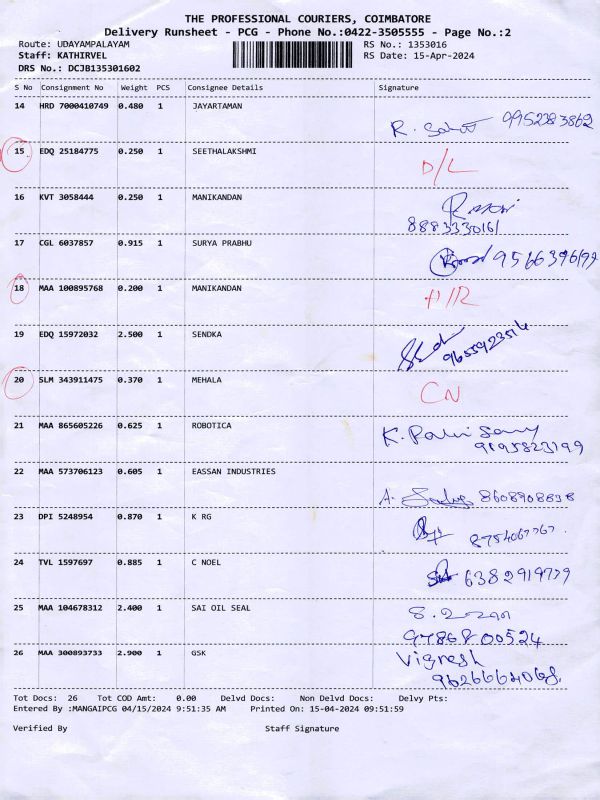 THE PROFESSIONAL COURIERS, COIMBATORE
Delivery Runsheet - PCG - Phone No.:0422-3505555 - Page No.:2
Route: UDAYAMPALAYAM RS No.: 1353016
Staff: KATHIRVEL RS Date: 15-Apr-2024
DRS No.: DCJB135301602
S No Consignment No Weight PCS Consignee Details Signature
14 HRD 7000410749 0.480 1 JAYARTAMAN
R. 9952283862
15 EDQ 25184775 0.250 1 SEETHALAKSHMI D/L
16 KVT 3058444 0.250 1 MANIKANDAN
8883330161
17 CGL 6037857 0.915 1 SURYA PRABHU
18 MAA 100895768 0.200 1 MANIKANDAN
19 EDQ 15972032 2.500 1 SENDKA
9655923514
20 SLM 343911475 0.370 1 MEHALA CN
21 MAA 865605226 0.625 1 ROBOTICA
K.
9195823199
22 MAA 573706123 0.605 1 EASSAN INDUSTRIES
A. 8608908838
23 DPI 5248954 0.870 1 K RG
24 TVL 1597697 0.885 1 C NOEL
6382919779
25 MAA 104678312 2.400 1 SAI OIL SEAL
9786800524
26 MAA 300893733 2.900 1 GSK Vignesh
9626664068
Tot Docs: 26 Tot COD Amt: 0.00 Delvd Docs: Non Delvd Docs: Delvy Pts:
Entered By :MANGAIPCG 04/15/2024 9:51:35 AM Printed On: 15-04-2024 09:51:59
Verified By Staff Signature